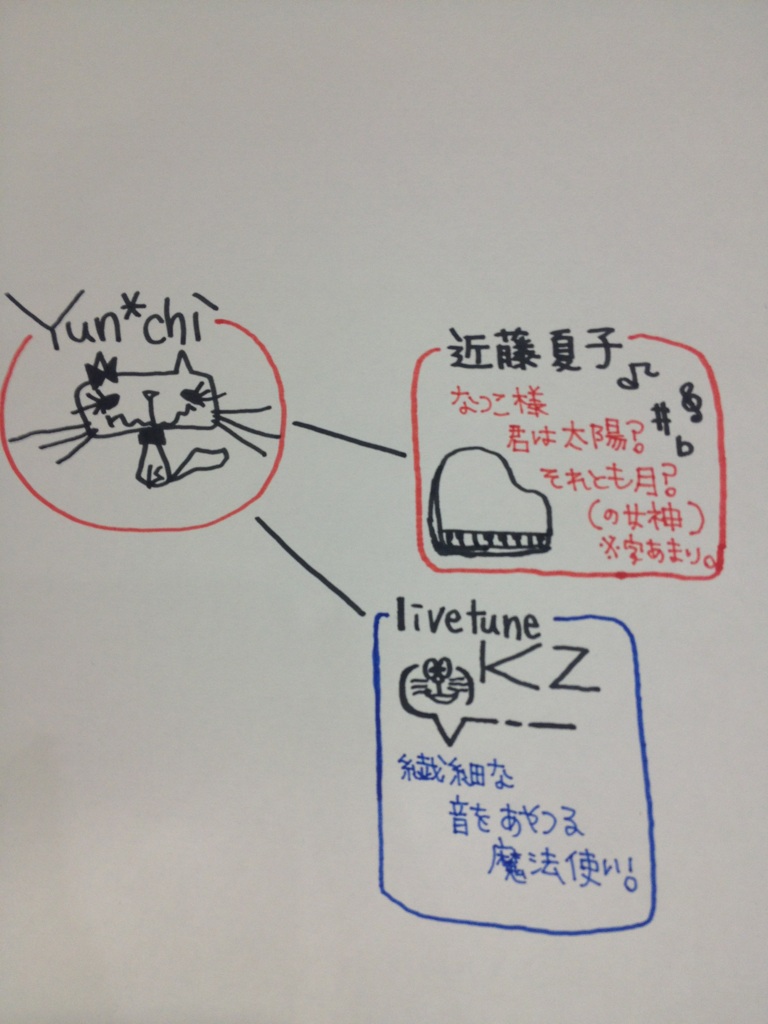 Yun*chi
近藤夏子
なつこ様
君は太陽?
それとも月?
(の女神)
※字あまり。
livetune
KZ
繊細な
音をあやつる
魔法使い!